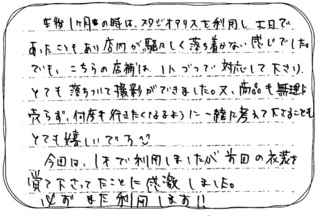 生後1ヶ月の時は、スタジオアリスを利用し土日で
あったこともあり店内が騒々しく落ち着かない感じでした。
でも、こちらの店舗は1人づつで対応して下さり、
とても落ちついて撮影ができました。又、商品も無理に
売らず、何度も行きたくなるように一緒に考えて下さることも
とても嬉しいです
今回は、1才で利用しましたが前回の衣装を
覚えて下さってたことに感激しました。
必ずまた利用します!!